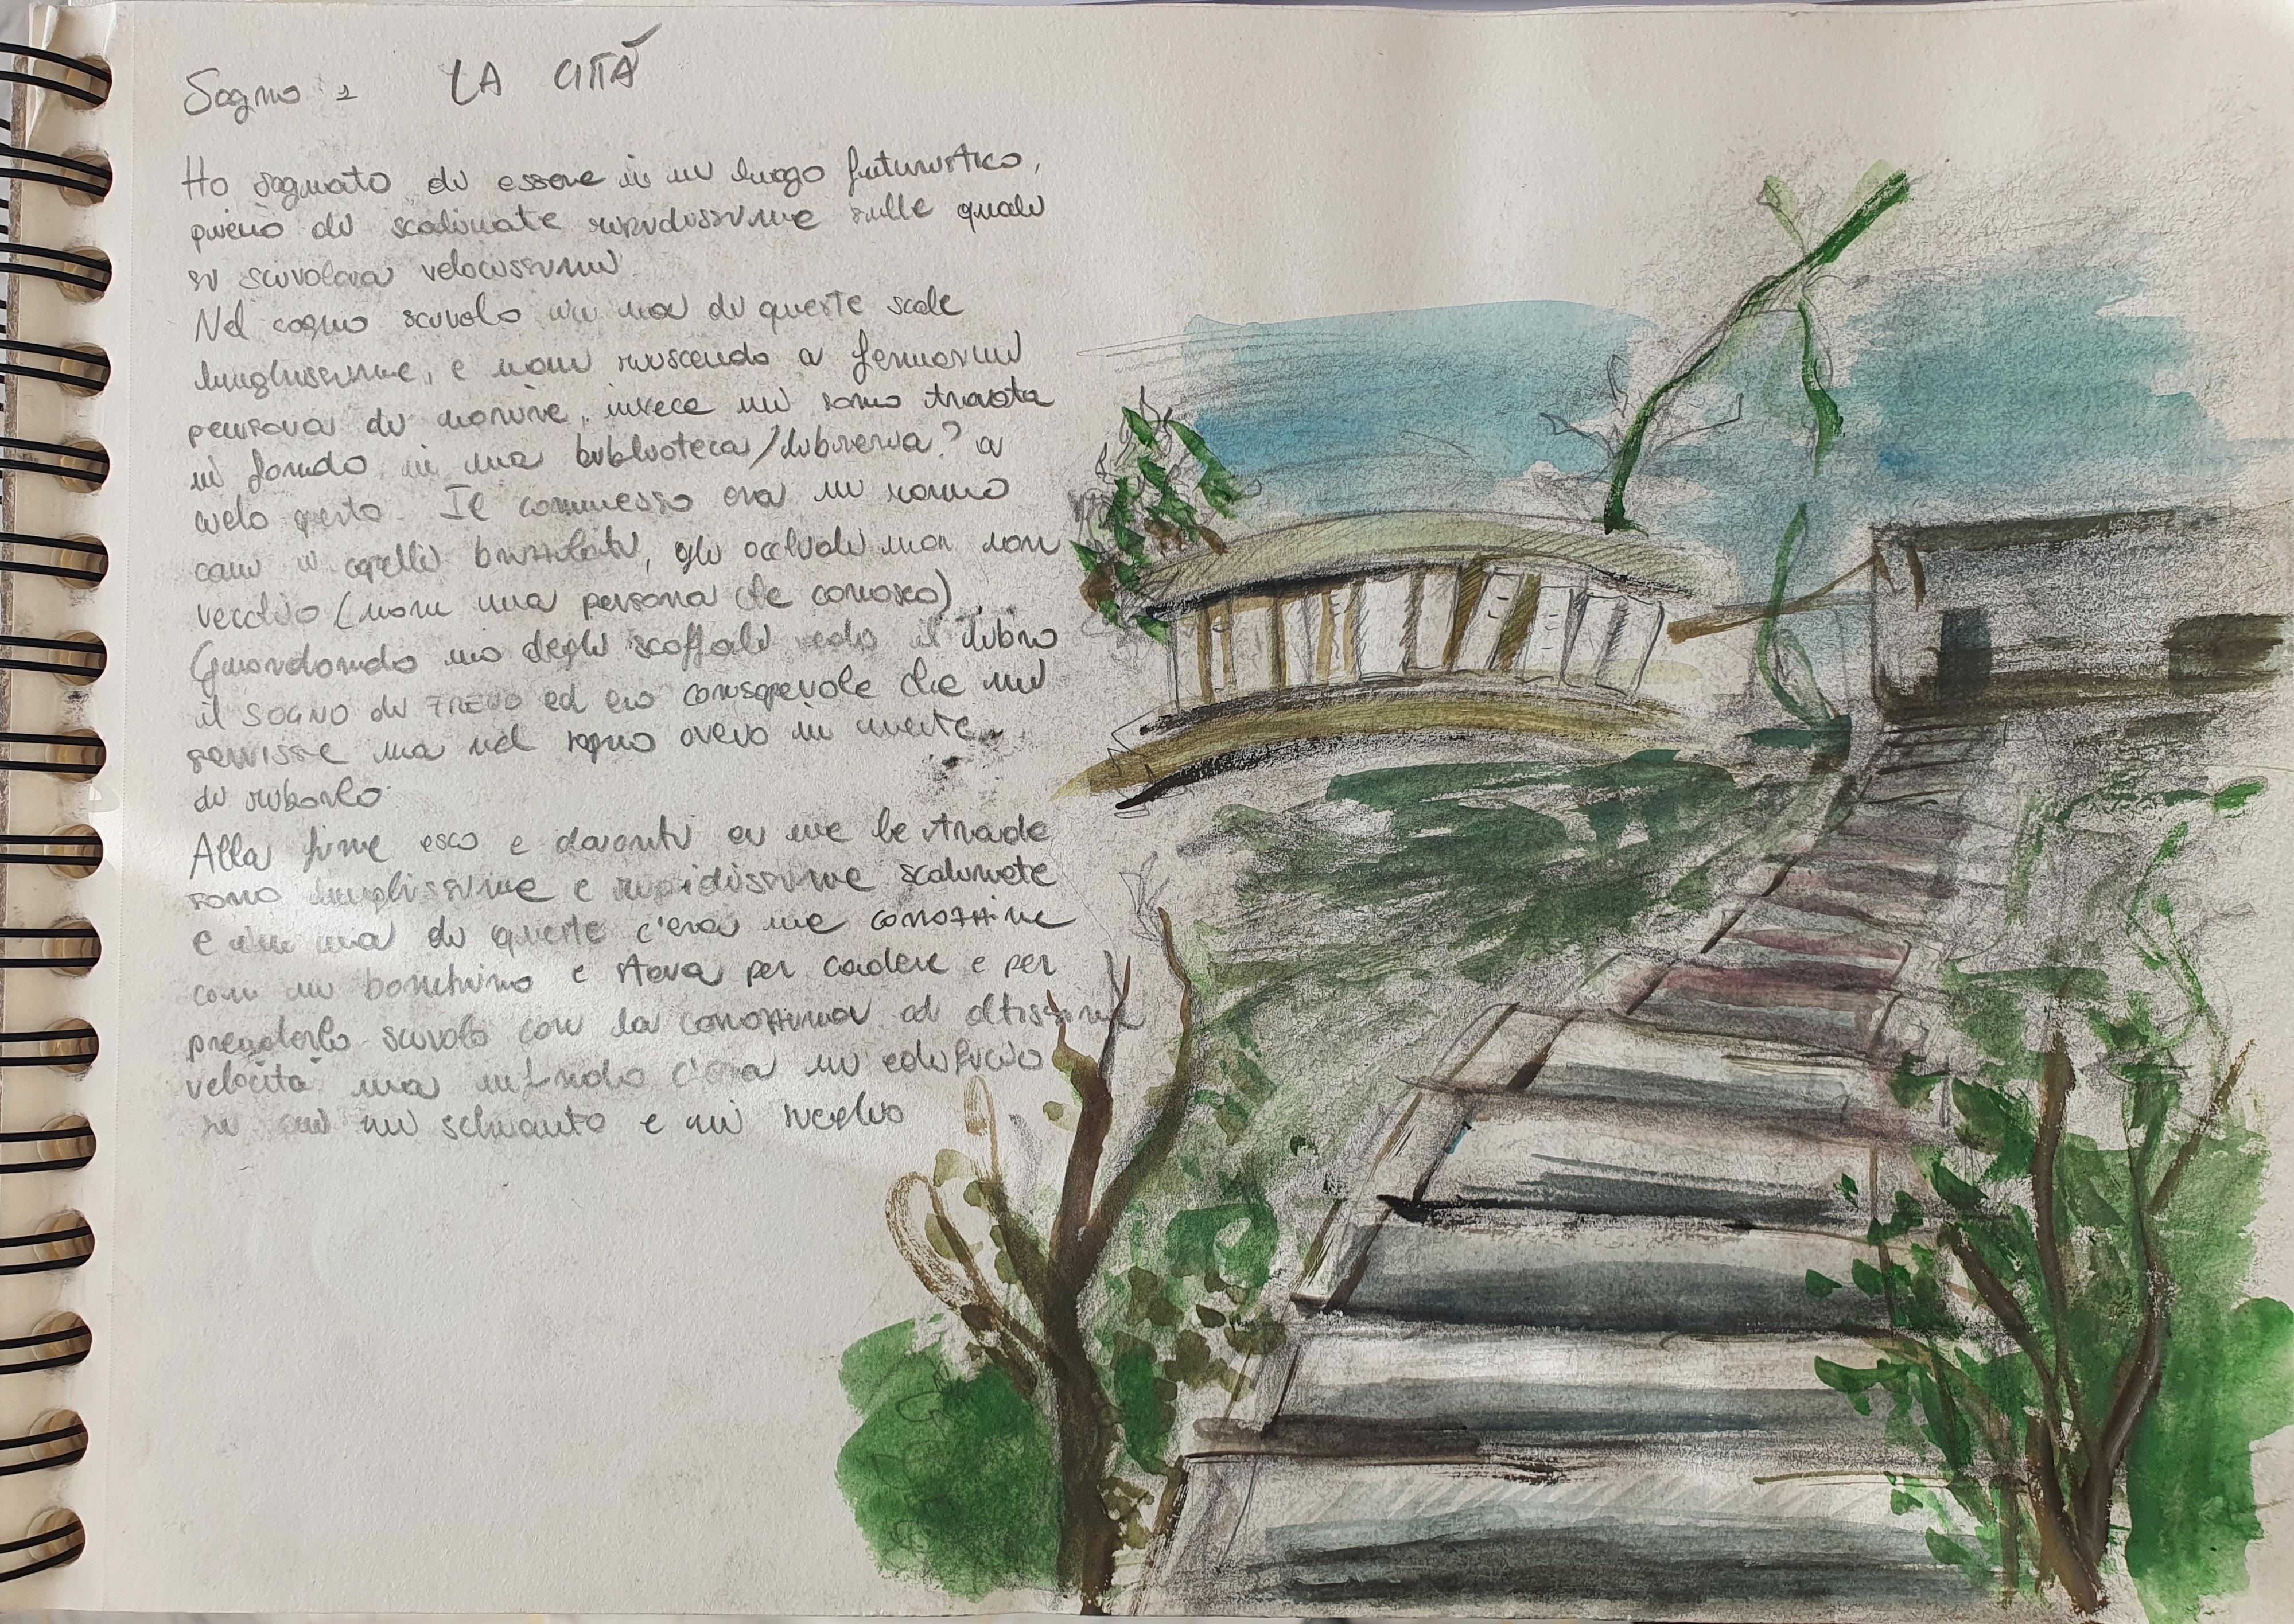 Sogno 1 LA CITTÀ
Ho sognato di essere in un luogo futuristico,
pieno di scalinate ripidissime sulle quali
si scivolava velocissimi.
Nel sogno scivolo in una di queste scale
lunghissime, e non riuscendo a fermarmi
pensavo di morire, invece mi sono trovata
in fondo in una biblioteca/libreria? a
cielo aperto. Il commesso era un uomo
con i capelli brizzolati, gli occhiali ma non
vecchio (non una persona che conosco)
Guardando uno degli scaffali vedo il libro
il SOGNO di ed ero consapevole che mi
servisse ma nel sogno avevo in mente
di rubarlo.
Alla fine esco e davanti a me le strade
sono lunghissime e ripidissime scalinate
e in una di queste c'era una carrozzina
con un bambino e stava per cadere e per
prenderlo scivolo con la carrozzina ad altissima
velocità ma in fondo c'era un edificio
su cui mi schianto e mi sveglio